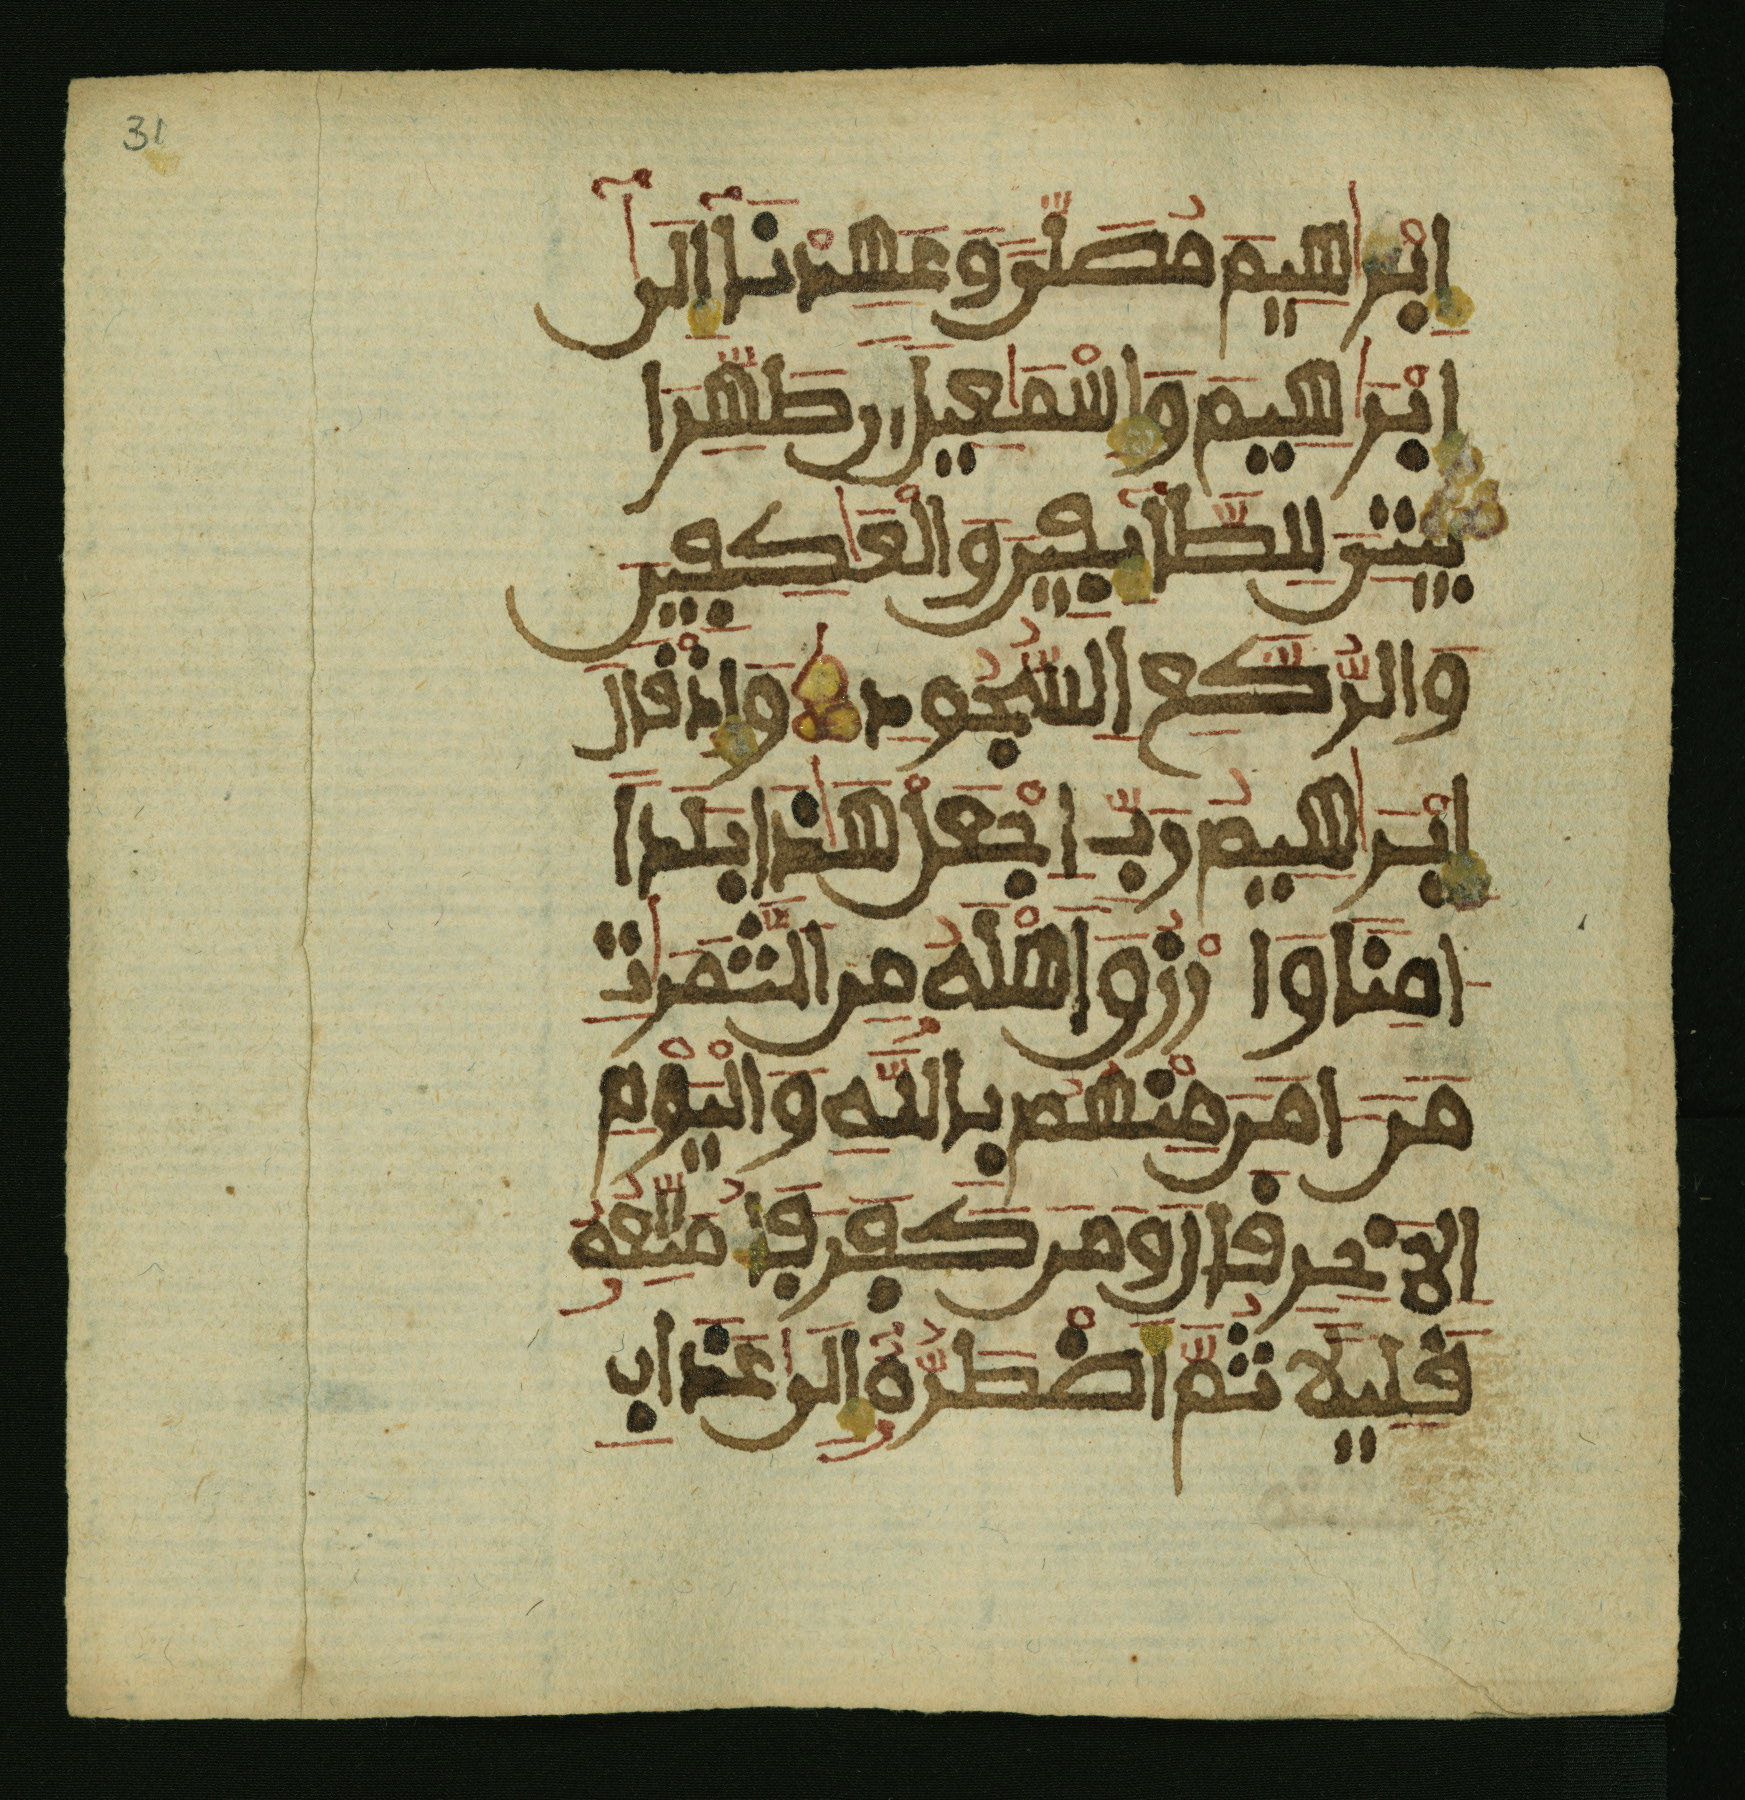 31
إِبْرَٰهِيمَ مُصَلًّى وَعَهِدْنَآ إِلَىٰٓ
إِبْرَٰهِيمَ وَإِسْمَٰعِيلَ أَن طَهِّرَا
بَيْتِيَ لِلطَّآئِفِينَ وَالْعَٰكِفِينَ
وَالرُّكَّعِ السُّجُودِ وَإِذْ قَالَ
إِبْرَٰهِيمُ رَبِّ اجْعَلْ هَٰذَا بَلَدًا
ءَامِنًا وَارْزُقْ أَهْلَهُ مِنَ الثَّمَرَٰتِ
مَنْ ءَامَنَ مِنْهُم بِاللَّهِ وَالْيَوْمِ
الْأَخِرِ قَالَ وَمَن كَفَرَ فَأُمَتِّعُهُ
قَلِيلًا ثُمَّ أَضْطَرُّهُ إِلَىٰ عَذَابِ